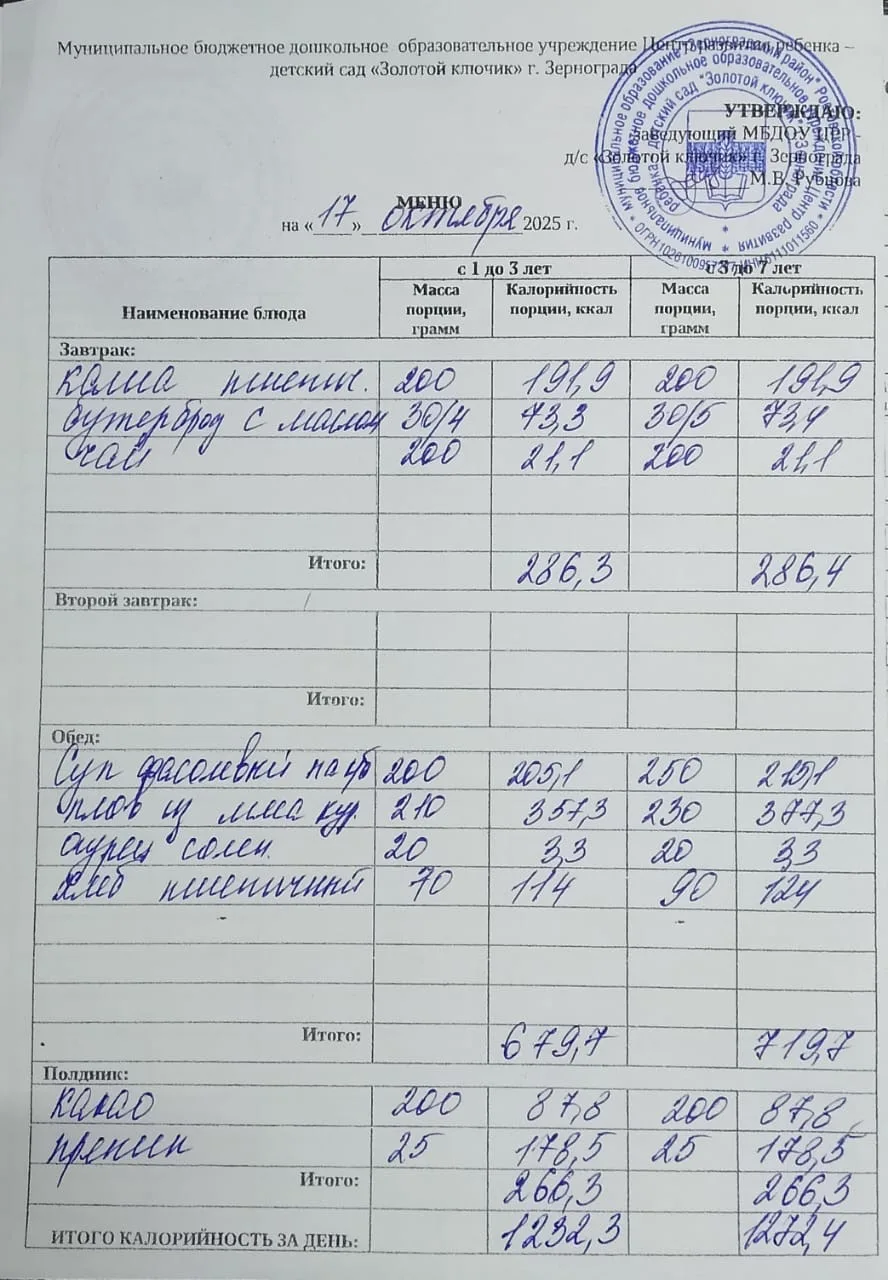 Муниципальное бюджетное дошкольное образовательное учреждение Центр развития ребенка –
детский сад «Золотой ключик» г. Зернограда
УТВЕРЖДАЮ:
Заведующий МБДОУ ЦРР -
д/с «Золотой ключик» г. Зернограда
М.В. Рубцова
МЕНЮ
на «17» октября 2025 г.
Наименование блюда с 1 до 3 лет с 3 до 7 лет
Масса порции, грамм Калорийность порции, ккал Масса порции, грамм Калорийность порции, ккал
Завтрак:
каша пшенн. 200 191,9 200 191,9
бутерброд с маслом 30/4 73,3 30/5 73,4
чай 200 21,1 200 21,1
Итого: 286,3 286,4
Второй завтрак:
Итого:
Обед:
Суп фасолевый на 200 205,1 250 215,1
плов из мяса кур. 210 357,3 230 377,3
огурец солен. 20 3,3 20 3,3
хлеб пшеничный 70 114 90 124
Итого: 679,7 719,7
Полдник:
какао 200 87,8 200 87,8
пряник 25 178,5 25 178,5
Итого: 266,3 266,3
ИТОГО КАЛОРИЙНОСТЬ ЗА ДЕНЬ: 1232,3 1272,4